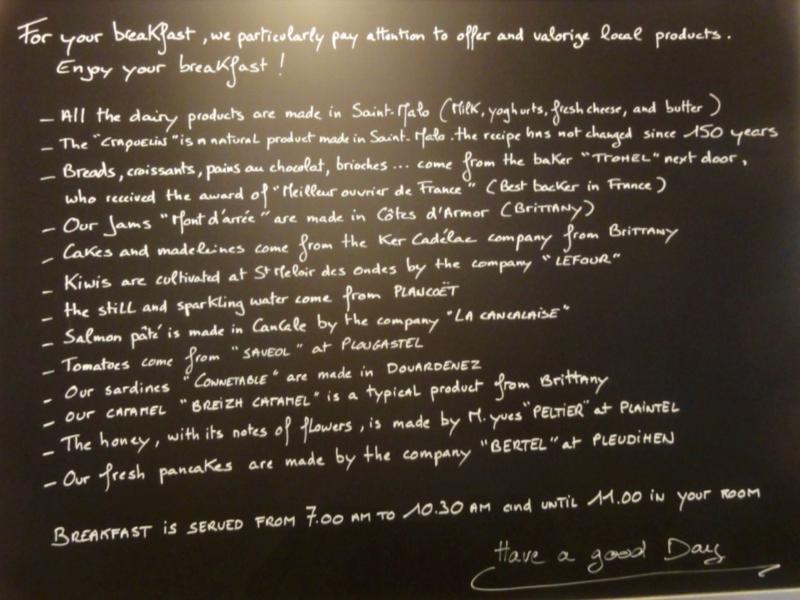 For your breakfast, we particularly pay attention to offer and valorize local products.
Enjoy your breakfast !
- All the dairy products are made in Saint-Malo (Milk, yoghurts, fresh cheese, and butter)
- The "CRAQUELIN" is a natural product made in Saint-Malo. the recipe has not changed since 150 years
- Breads, croissants, pains au chocolat, brioches... come from the baker "TROHEL" next door,
who received the award of "Meilleur ouvrier de France" (Best backer in France)
- Our Jams "Mont d'arrée" are made in Côtes d'Armor (BRITTANY)
- Cakes and madeleines come from the Ker Cadélac company from BRITTANY
- Kiwis are cultivated at St Meloir des ondes by the company "LEFOUR"
- the still and sparkling water come from PLANCOËT
- Salmon pâté is made in Cancale by the company "LA CANCALAISE"
- Tomatoes come from "SAVEOL" at PLOUGASTEL
- Our sardines "CONNETABLE" are made in DOUARDENEZ
- OUR CARAMEL "BREIZH CARAMEL" is a typical product from Brittany
- The honey, with its notes of flowers, is made by M. yves "PELTIER" at PLAINTEL
- Our fresh pancakes are made by the company "BERTEL" at PLEUDIHEN
BREAKFAST IS SERVED FROM 7.00 AM TO 10.30 AM and UNTIL 11.00 IN YOUR ROOM
Have a good Day